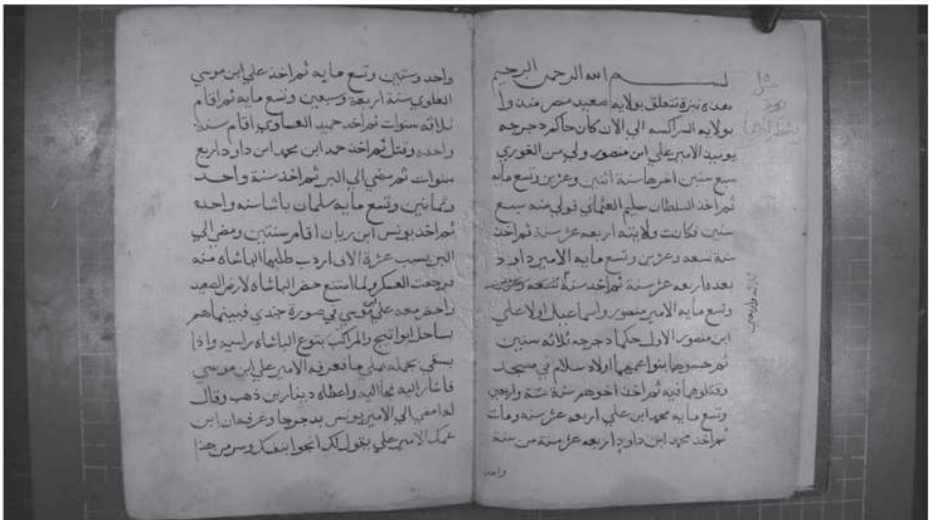 بسم الله الرحمن الرحيم
هذه نبزة تتعلق بولايه صعيد مصر مند وا
بولايه الجراكسه الي الان كان حاكم دجرجه
يوميد الامير علي ابن منصور ولي من الغوري
سبع سنين اخرها سنة اثنين وعزين وتسع مايه
ثم اخذ السلطان سليم العثماني فولي منه سبع
سنين فكانت ولايته اربعه عز سنة ثم اخذ
سنة تسعه وعزين وتسع مايه الامير داود
بعده اربعه عز سنة ثم اخذ سنة تسعه وعزين
وتسع مايه الامير منصور واسماعيل اولاد علي
ابن منصور الاول حكما دجرجه ثلاثه سنين
ثم حبسوهما بنوا عمهما اولاد سلام في مسجد
وقتلوهما فيه ثم اخذ اخوهم سنة ستة واربعين
وتسع مايه محمد ابن علي اربعه عز سنه ومات
ثم اخذ محمد ابن داود اربعه عز سنة من سنة
واحد
ثلاثه واربعين
واحد وستين وتسع مايه ثم اخذ علي ابن موسي
العلوي سنة اربعة وسبعين وتسع مايه ثم اقام
ثلاثه سنوات ثم اخذ حميد العساوي اقام سنة
واحده وقتل ثم اخذ حمد ابن محمد ابن داود اربع
سنوات ثم مضي الي البر ثم اخذ سنة واحد
وثمانين وتسع مايه سلمان باشا سنه واحده
ثم اخذ يونس ابن ريان اقام سنتين ومضي الي
البر بسبب عزة الاف اردب طلبها الباشاه منه
فرجعت العسكر ولما امتنع حضر الباشاه لارض الصعيد
واحضر معه علي ابن موسي في صورة جندي فبينما هم
بساحل ابواتيج والمراكب بتوع الباشاه راسيه واذا
بسقي بجمله يملي ما فعرفه الامير علي ابن موسي
فاشار اليه فجا اليه واعطاه دينارين ذهب وقال
له امضي الي الامير يونس بدجرجا وعرفه ان ابن
عمك الامير علي يقول لك انجوا بنفسك وسر من هذا